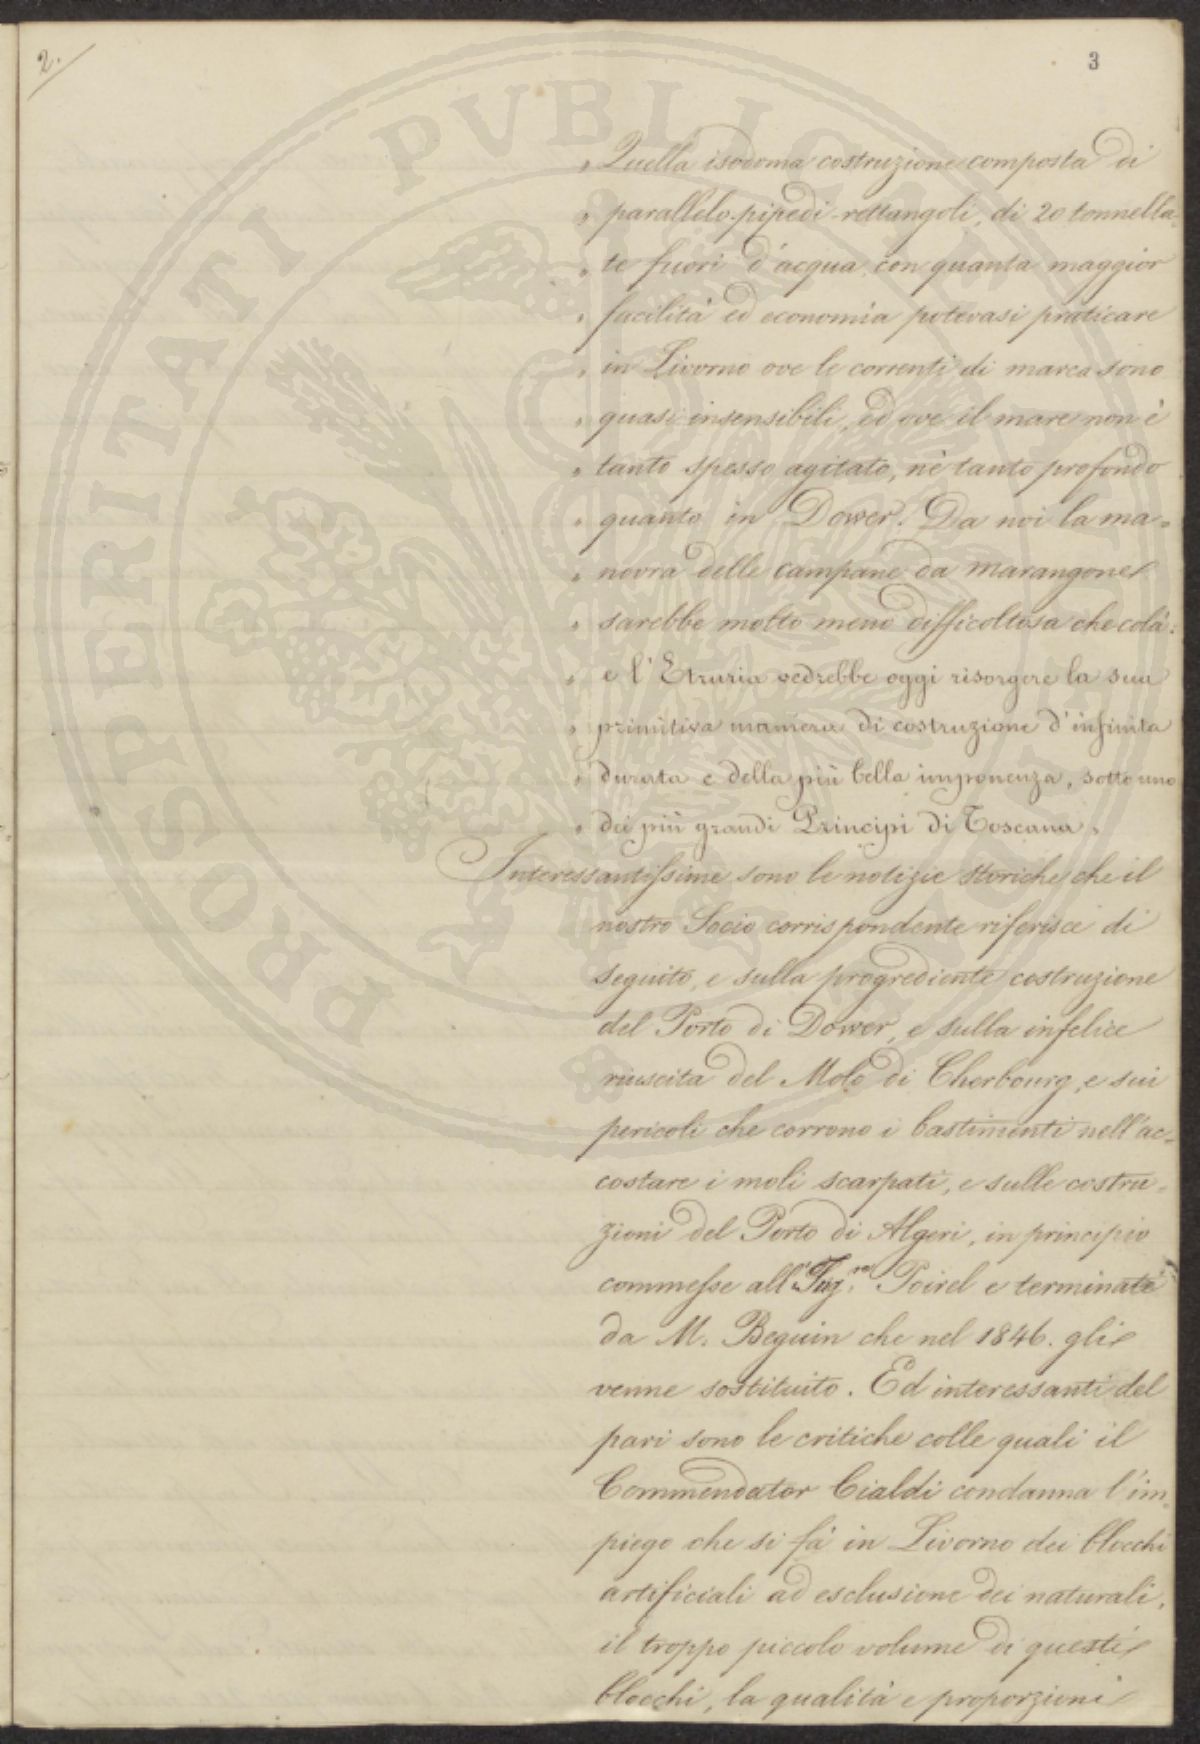 2.
3
„ Quella isodoma costruzione composta di
„ parallelo-pipedi-rettangoli, di 20 tonnella-
„ te fuori d'acqua, con quanta maggior
„ facilità ed economia potevasi praticare
„ in Livorno ove le correnti di marea sono
„ quasi insensibili, ed ove il mare non è
„ tanto spesso agitato, nè tanto profondo
„ quanto in Dower. Da noi la ma=
„ novra delle campane da marangone
„ sarebbe molto meno difficoltosa che colà:
„ e l'Etruria vedrebbe oggi risorgere la sua
„ primitiva maniera di costruzione d'infinita
„ durata e della più bella imponenza, sotto uno
„ dei più grandi Principi di Toscana„
Interessantissime sono le notizie storiche che il
nostro Socio corrispondente riferisce di
seguito, e sulla progrediente costruzione
del Porto di Dower, e sulla infelice
riuscita del Molo di Cherbourg, e sui
pericoli che corrono i bastimenti nell'ac=
costare i moli scarpati, e sulle costru=
zioni del Porto di Algeri, in principio
commesse all'Ing.re Poirel e terminate
da M. Beguin che nel 1846. gli
venne sostituito. Ed interessanti del
pari sono le critiche colle quali il
Commendator Cialdi condanna l'im=
piego che si fà in Livorno dei blocchi
artificiali ad esclusione dei naturali,
il troppo piccolo volume di questi
blocchi, la qualità e proporzioni
PROSPERITATI PVBLICAE